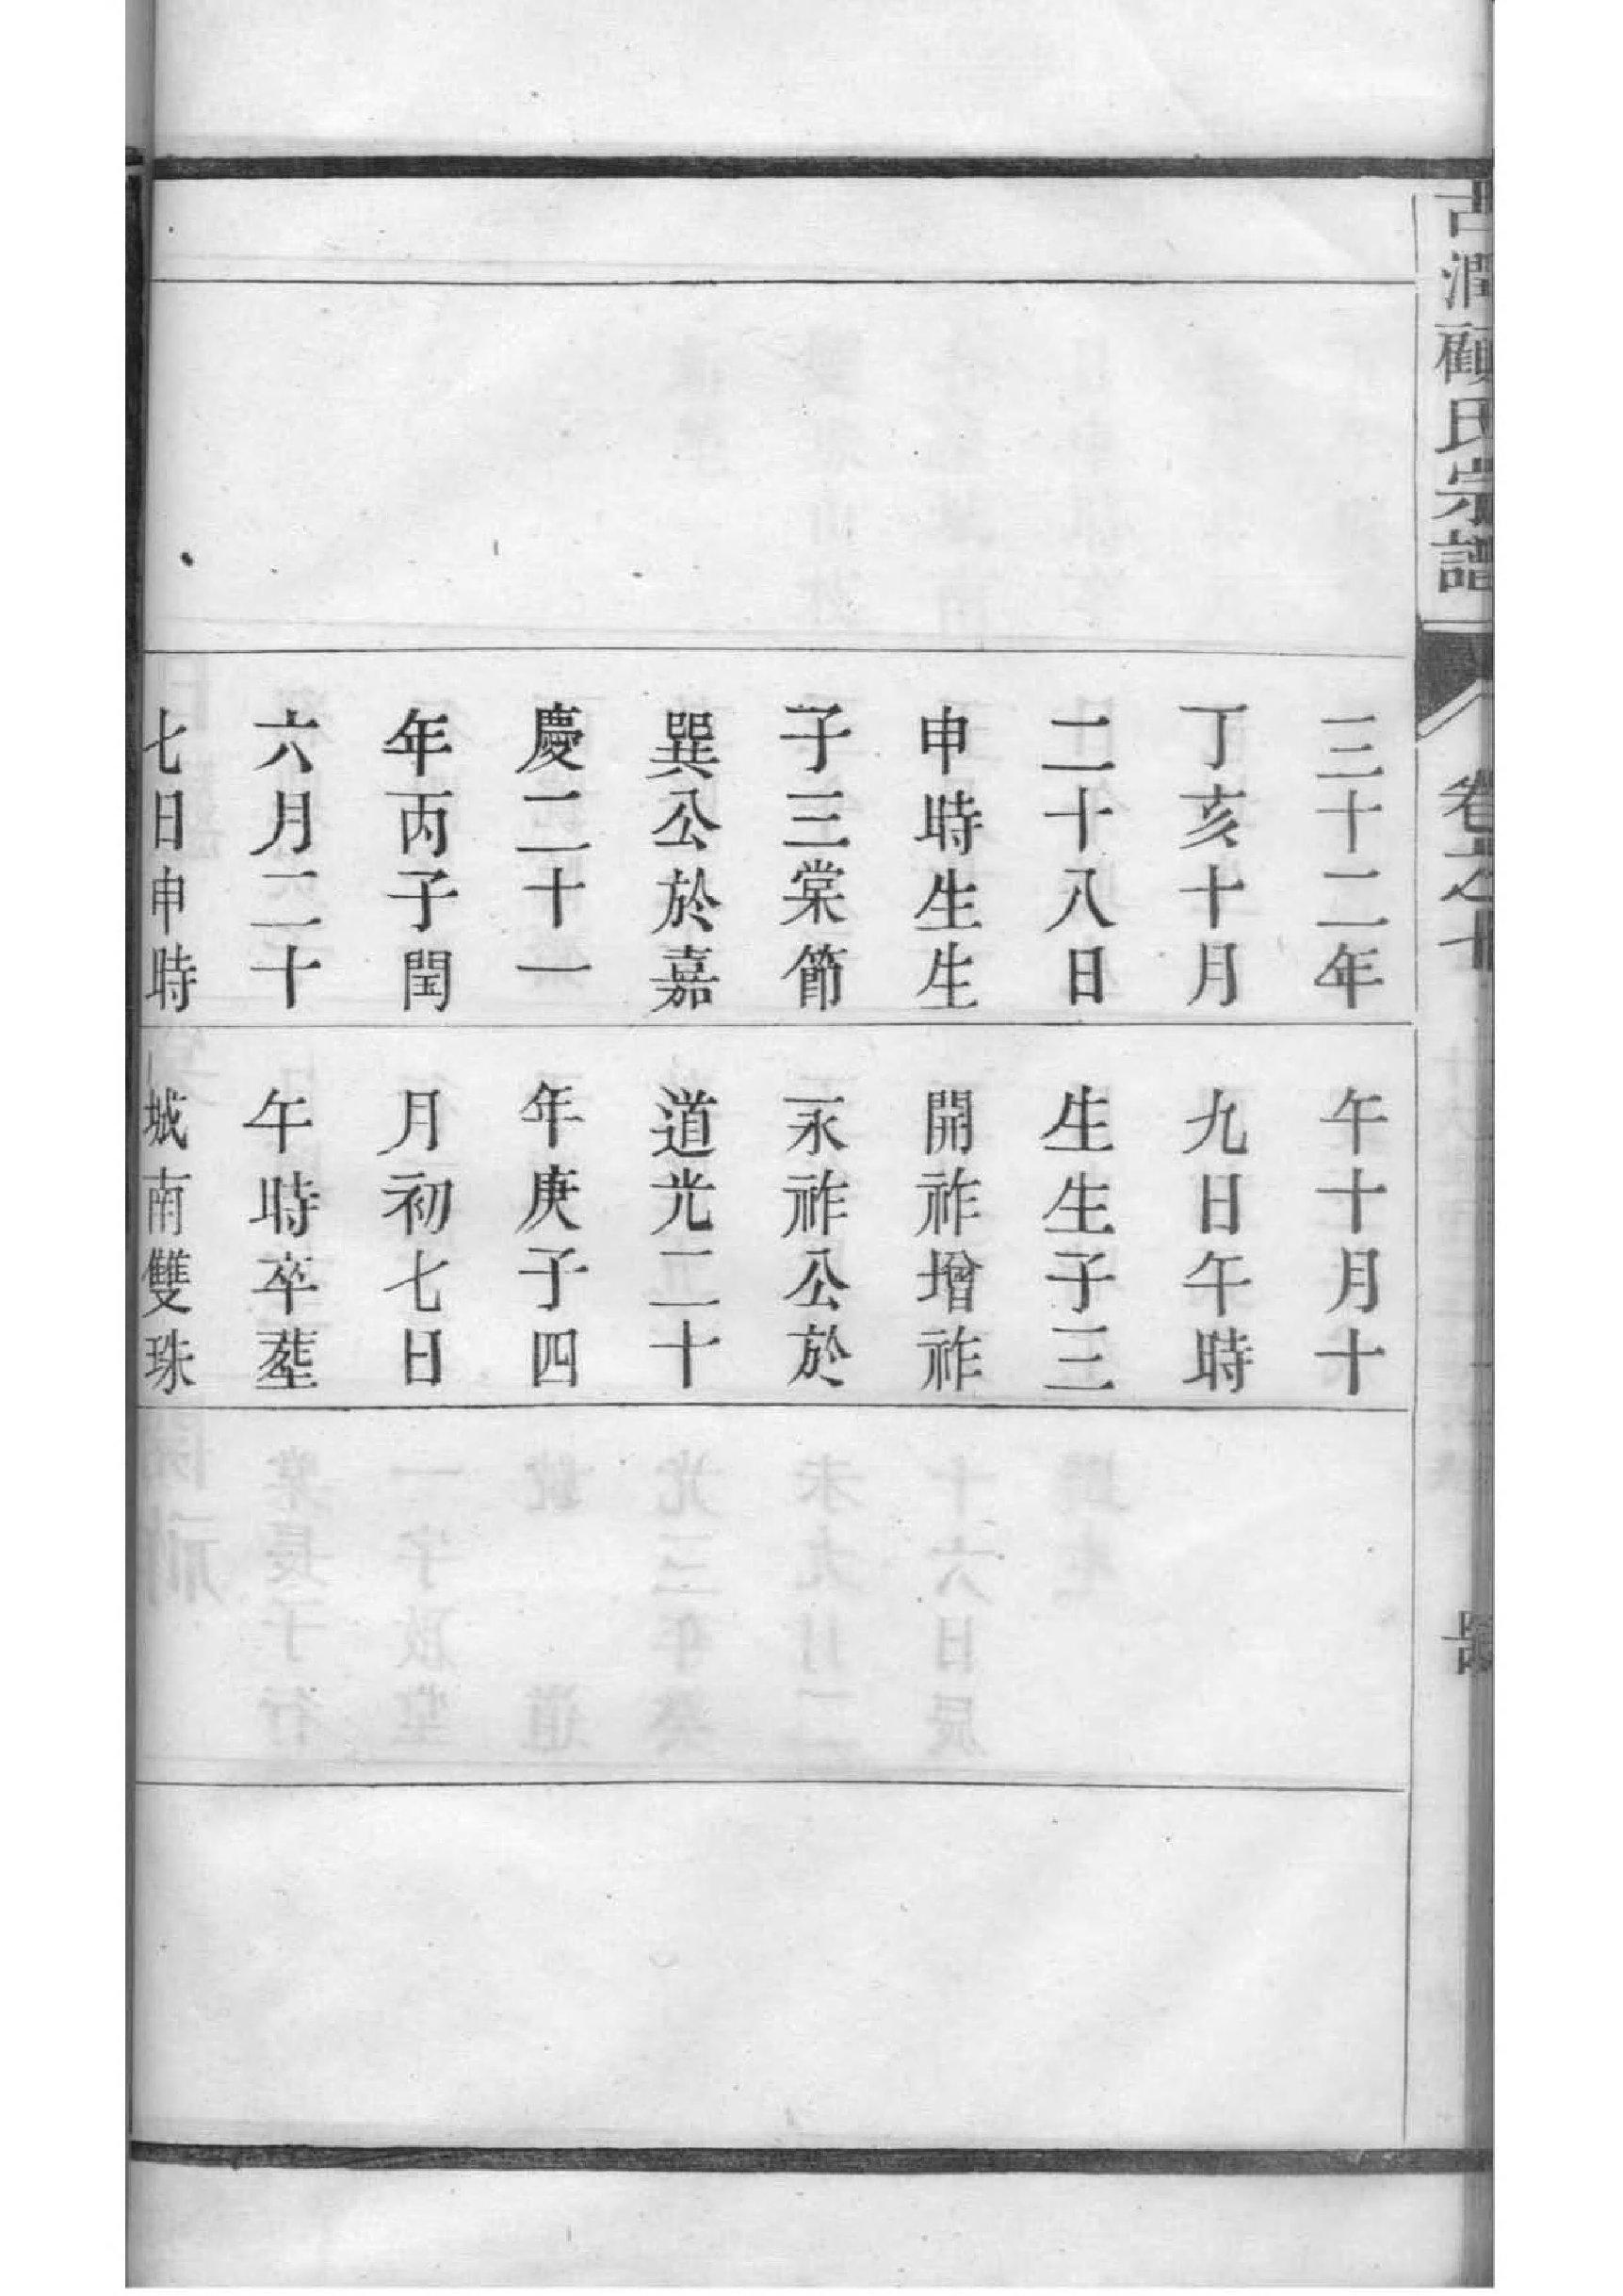 古潤顧氏宗譜
卷之七
三十二年
丁亥十月
二十八日
申時生生
子三棠節
巽公於嘉
慶二十一
年丙子閏
六月二十
七日申時
午十月十
九日午時
生生子三
開祚增祚
永祚公於
道光二十
年庚子四
月初七日
午時卒塟
城南雙珠